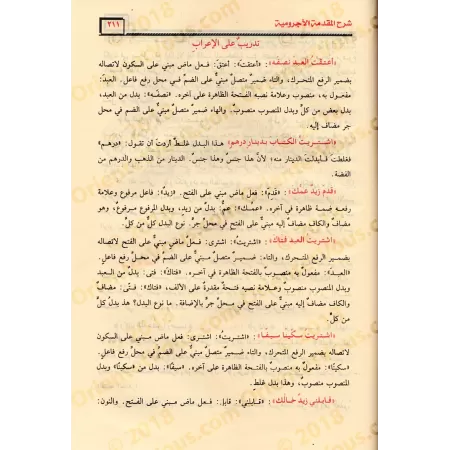 شرح المقدمة الآجرومية
٣١١
تدريبٌ على الإعرابِ
«أعتقتُ العبدَ نصفَه»: «أعتقتُ»: أعتقَ: فعل ماض مبني على السكون لاتصاله
بضمير الرفع المتحرك، والتاء ضميرٌ متصلٌ مبنيٌّ على الضمِّ في محل رفع فاعل. العبدَ:
مفعول به، منصوب وعلامة نصبه الفتحة الظاهرة على آخره. «نصفَه»: بدل من العبد،
بدل بعض من كلٍّ وبدل المنصوب منصوبٌ. والهاء ضمير متصلٌ مبنيٌّ على الضم في محل
جر مضاف إليه.
«اشتريتُ الكتابَ بدينارٍ درهمٍ» هذا البدل غلطٌ أردتَ أن تقول: «درهم»
فغلطتَ فأبدلتَ الدينار منه؛ لأنَّ هذا جنسٌ وهذا جنسٌ. الدينار من الذهب والدرهم من
الفضة.
«قَدِمَ زيدٌ عمُّك»: «قَدِمَ»: فعل ماض مبني على الفتح. «زيدٌ»: فاعل مرفوع وعلامة
رفعه ضمة ظاهرة في آخره. «عمُّك»: عمُّ: بدلٌ من زيد، وبدل المرفوع مرفوعٌ، وهو
مضافٌ والكاف مضافٌ إليه مبنيٌّ على الفتح في محلِّ جرٍّ. نوع البدل كل من كلٍّ.
«اشتريتُ العبدَ فتاكَ»: «اشتريتُ»: اشترى: فعلٌ ماضٍ مبنيٌّ على الفتح لاتصاله
بضمير الرفع المتحرك، والتاء: ضميرٌ متصلٌ مبنيٌّ على الضمِّ في محلِّ رفع فاعلٍ.
«العبدَ»: مفعولٌ به منصوبٌ بالفتحة الظاهرة في آخره. «فتاكَ»: فتى: بدلٌ من العبد
وبدل المنصوب منصوبٌ وعلامة نصبه فتحةٌ مقدرةٌ على الألف، «فتاكَ»: فتى: مضافٌ
والكاف مضاف إليه مبنيٌّ على الفتح في محلِّ جرٍّ بالإضافة. ما نوع البدل؟ هذ بدلُ كلٍّ
من كلٍّ.
«اشتريتُ سكِّينًا سيفًا»: «اشتريتُ»: اشترى: فعل ماض مبني على السكون
لاتصاله بضمير الرفع المتحرك، والتاء ضميرٌ متصلٌ مبنيٌّ على الضمِّ في محل رفع فاعلٍ.
«سكينًا»: مفعولٌ به منصوبٌ بالفتحة الظاهرة على آخره. «سيفًا»: بدل من «سكينًا» وبدل
المنصوب منصوبٌ، وهذا بدل غلطٍ.
«قابلني زيدٌ خالُكَ»: «قابلني»: قابل: فعل ماض مبني على الفتح. والنون: